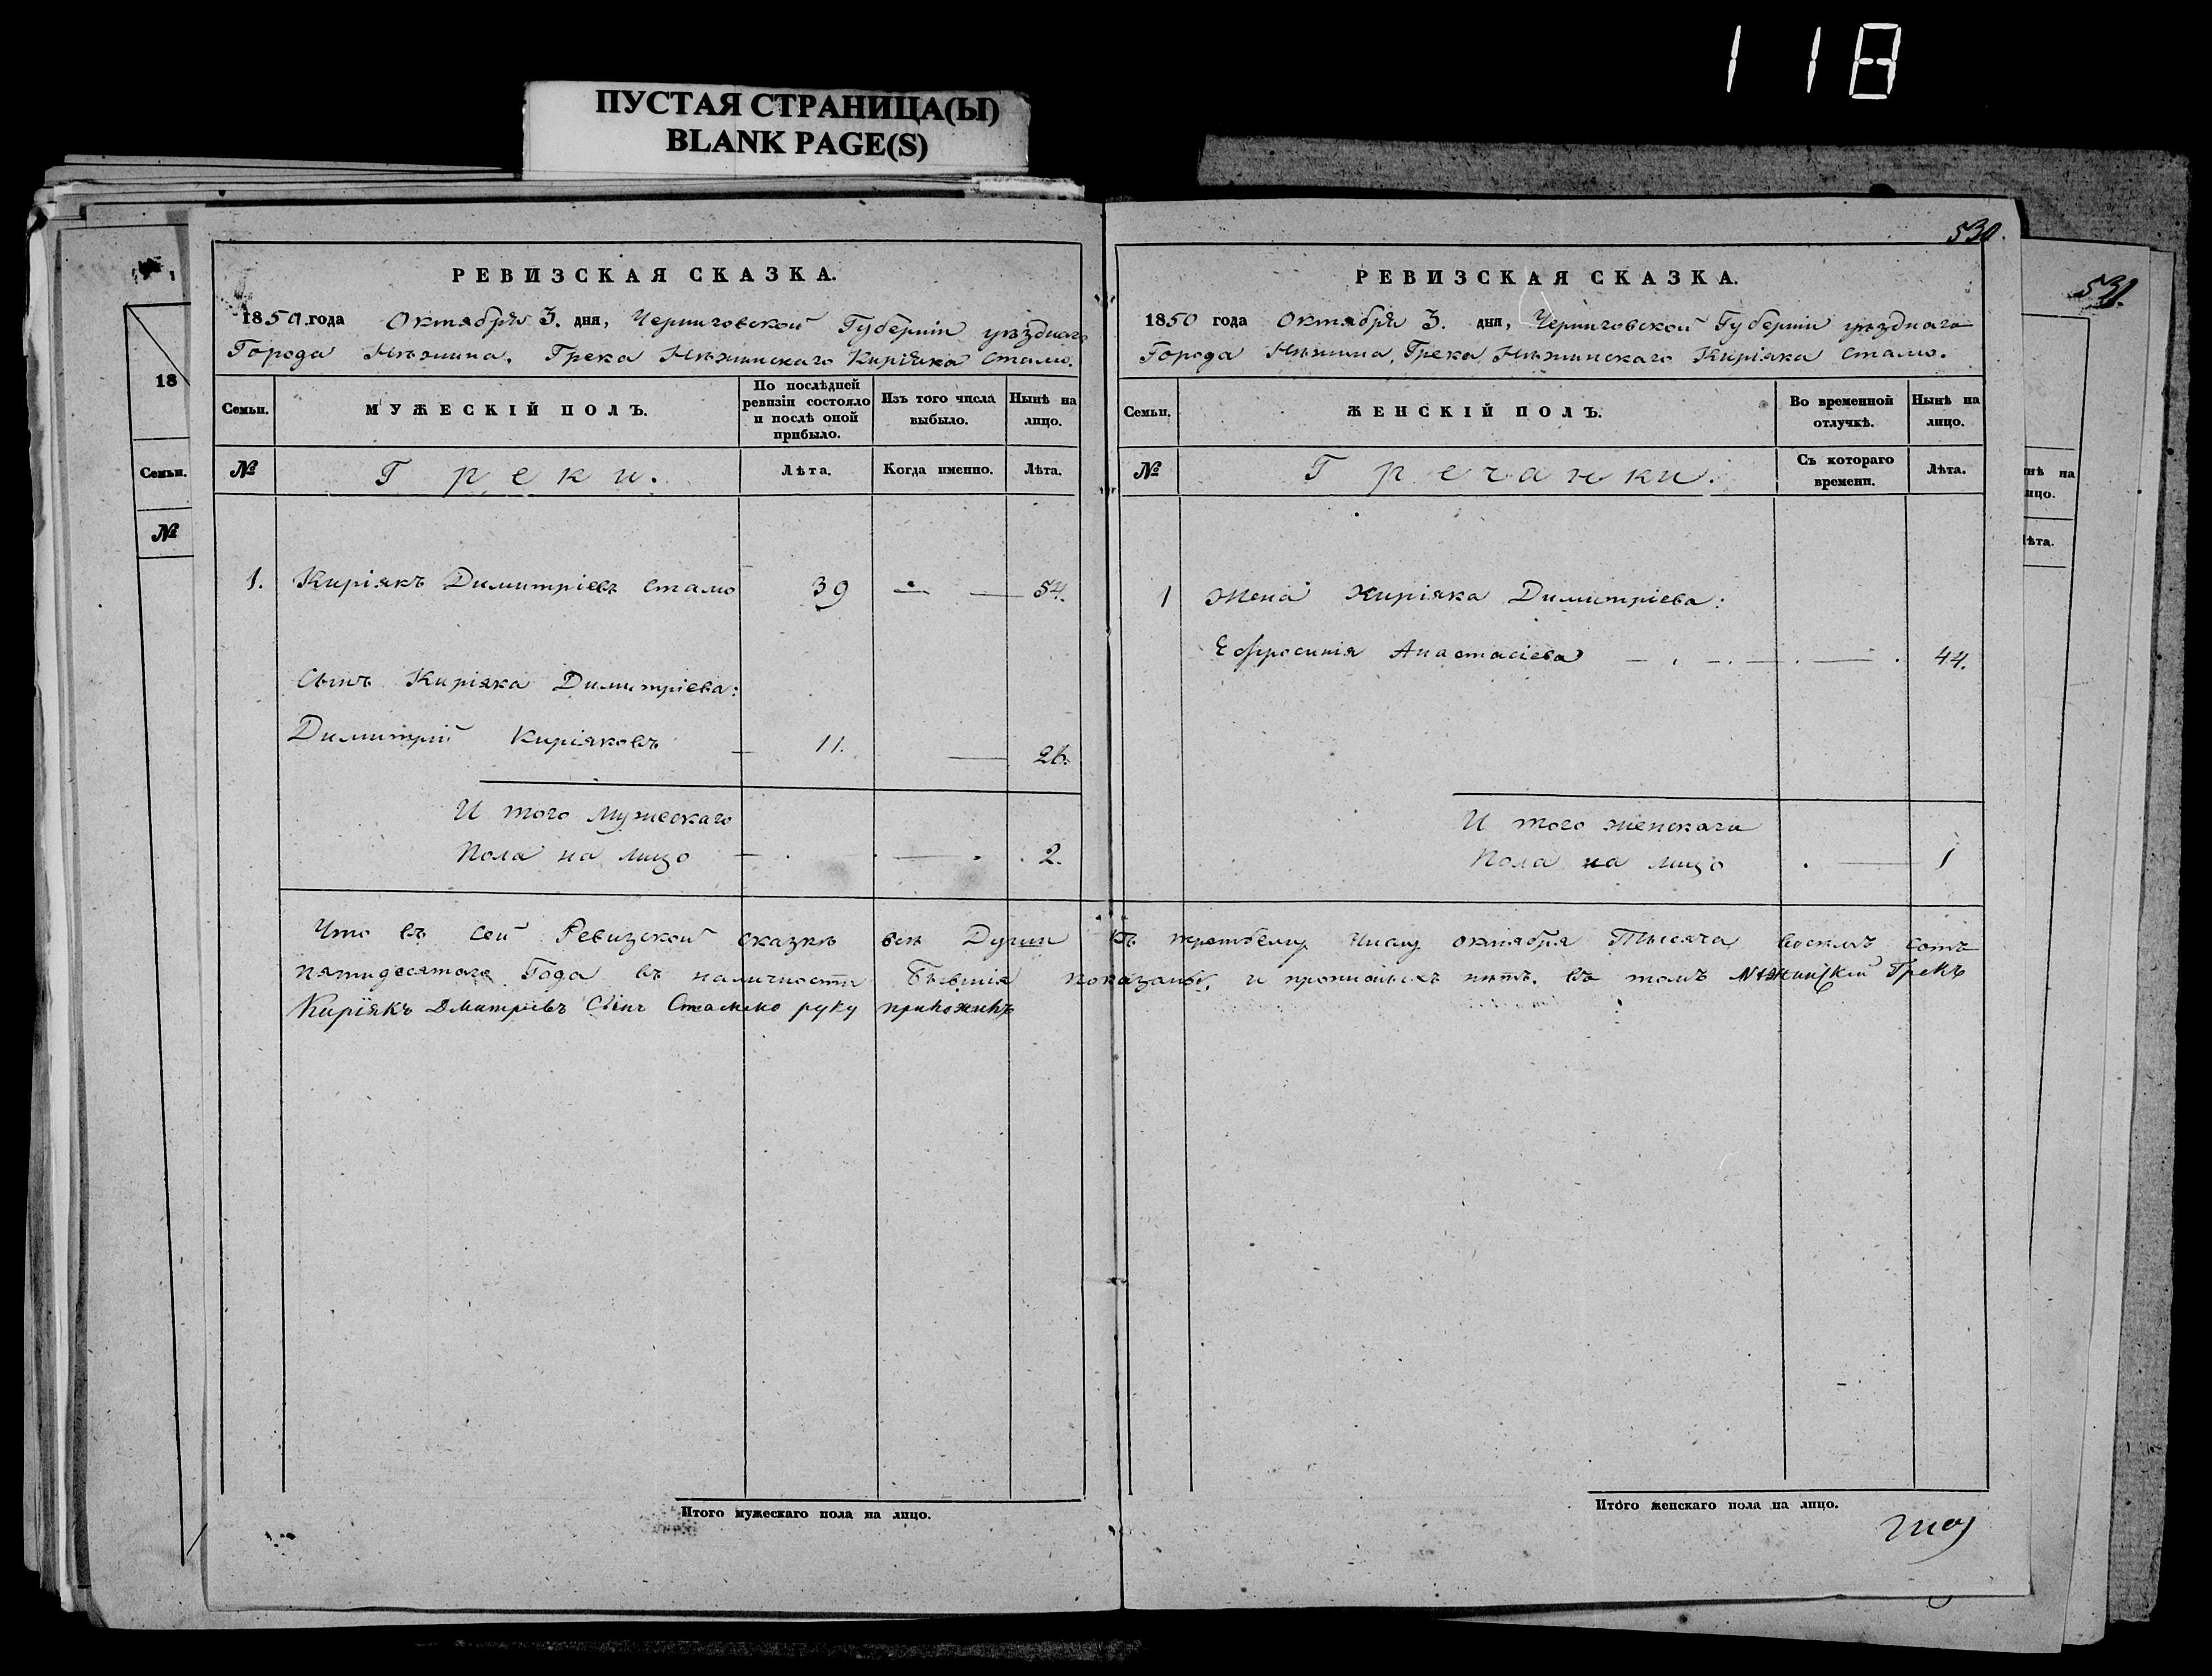 118
ПУСТАЯ СТРАНИЦА(Ы)
BLANK PAGE(S)
530.
РЕВИЗСКАЯ СКАЗКА.
1850.года Октября 3. дня, Черниговской Губерніи уѣзднаго
Города Нѣжина, Грека Нѣжинскаго Киріяка Стамо.
Семьи.
МУЖЕСКІЙ ПОЛЪ.
По послѣдней ревизіи состояло и послѣ оной прибыло.
Изъ того числа выбыло.
Нынѣ на лицо.
№
Греки.
Лѣта.
Когда именно.
Лѣта.
1. Киріякъ Димитріевъ Стамо 39 — — 54.
Сынъ Киріяка Димитріева:
Димитрій Киріяковъ — 11. — 26.
И того мужескаго
Пола на лицо — . . — . . 2.
РЕВИЗСКАЯ СКАЗКА.
1850 года Октября 3. дня, Черниговской Губерніи уѣзднаго
Города Нѣжина, Грека Нѣжинскаго Киріяка Стамо.
Семьи.
ЖЕНСКІЙ ПОЛЪ.
Во временной отлучкѣ.
Нынѣ на лицо.
№
Гречанки.
Съ котораго времени.
Лѣта.
1 Жена Киріяка Димитріева:
Ефросинія Анастасіева — . — . — . — . 44.
И того женскаго
Пола на лицо . — 1
Что въ сей Ревизской сказкѣ всѣ Души къ третьему числу октября Тысяча восемь сотъ
пятидесятаго Года въ наличности бывшія показаны, и прописныхъ нѣтъ. въ томъ Нѣжинскій Грекъ
Киріякъ Дмитріевъ Сынъ Стамо руку приложилъ
Итого мужескаго пола на лицо.
Итого женскаго пола на лицо.
531.
18
Семьи.
№
нѣ на
ицо.
ѣта.